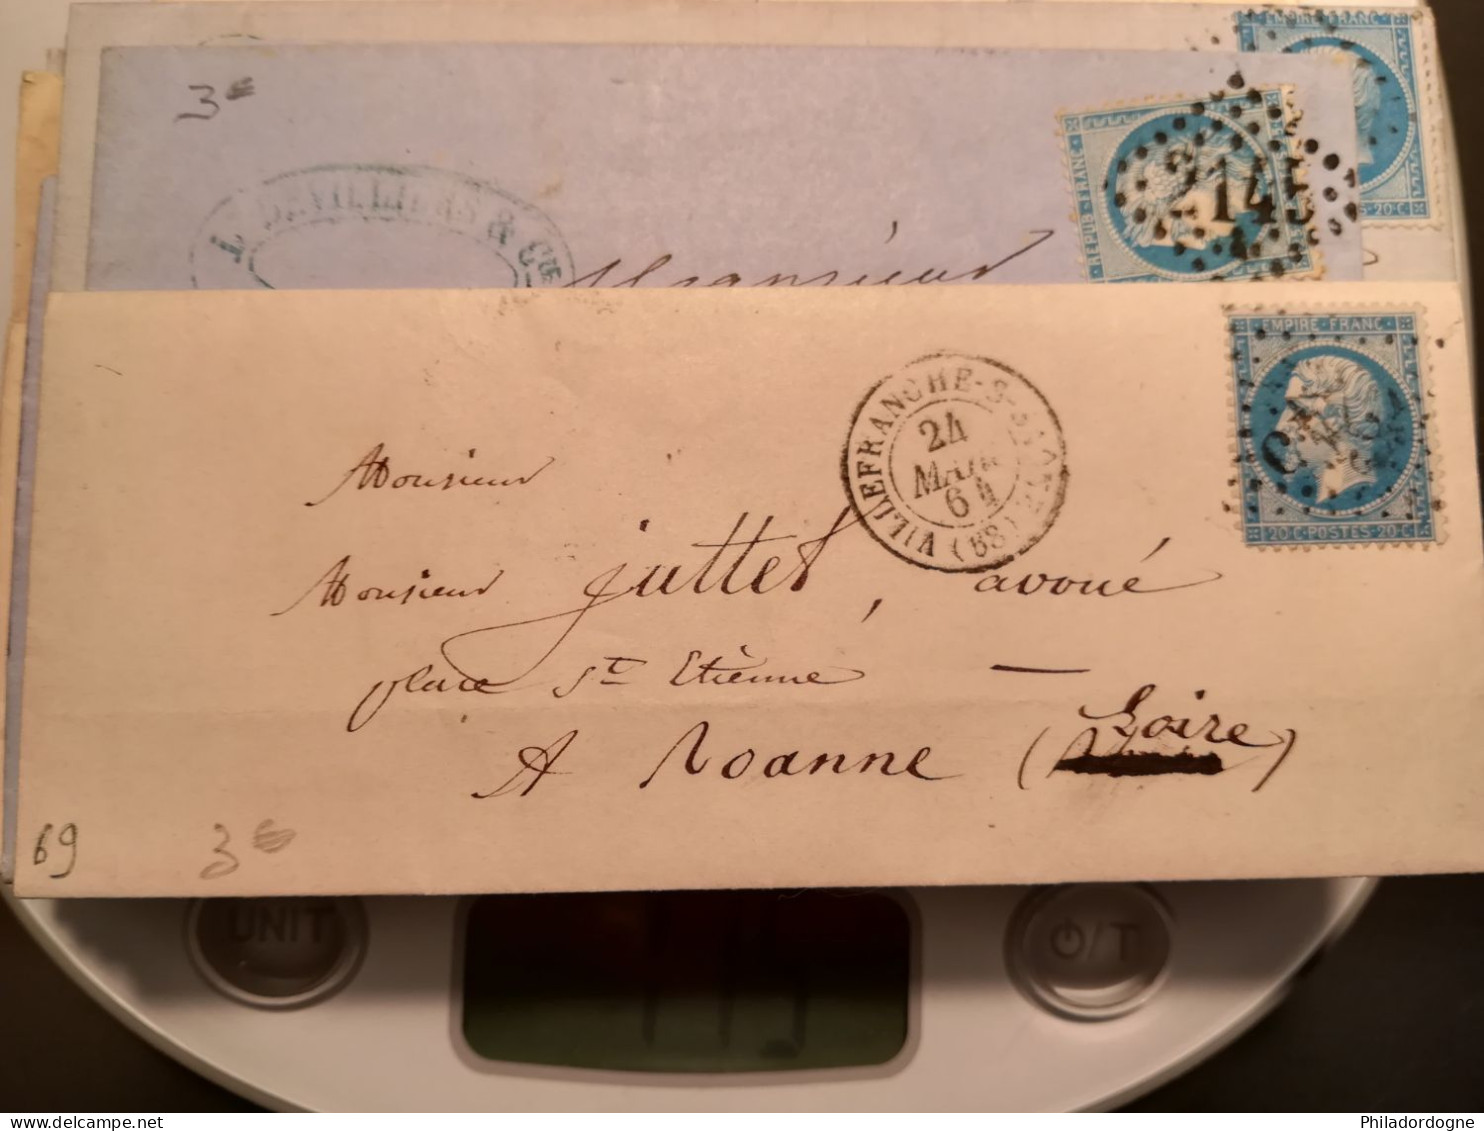 EMPIRE · FRANC
20·C
3 =
L. DEVILLIERS & Cie
2145
REPUB · FRANC
Monsieur
EMPIRE · FRANC ·
20·C · POSTES · 20·C
VILLEFRANCHE-S-SAONE (68)
24
MARS
64
Monsieur
Monsieur Juttet, avoué
place St Etienne —
A Roanne (Loire)
69
3 =
UNIT
/T
delcampe.net
Philadordogne